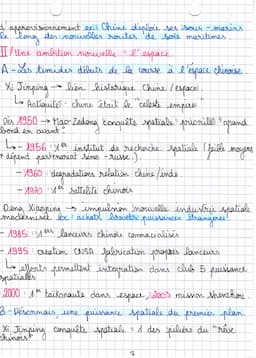 d'approvisionnement ex: Chine déploie ses sous-marins
le long des nouvelles routes de soie maritimes.
II/ Une ambition nouvelle : l'espace
A - Les timides débuts de la course à l'espace chinoise.
Xi Jinping → lien historique Chine/espace.
↳ Antiquité : chine était le "céleste empire"
Dès 1950 → Mao-Zedong conquête spatiale priorité "grand
bond en avant"
↳ - 1956 : 1er institut de recherche spatiale (faible moyens
+ dépend partenariat sino-russe).
- 1960 : dégradations relation chine/inde.
- 1970 : 1er satellite chinois
Deng Xiaoping → impulsion nouvelle industrie spatiale
modernisée ex: achats brevets puissances étrangères
- 1985 : 1ers lanceurs chinois commercialisés
- 1995 : création CNSA fabrication propres lanceurs
↳ efforts permettent intégration dans club 5 puissance
spatiales
2000 : 1er taikonaute dans espace, 2003 mission shenzhou.
B - Désormais, une puissance spatiale du premier plan.
Xi Jinping conquête spatiale : 1 des piliers du "rêve
chinois"